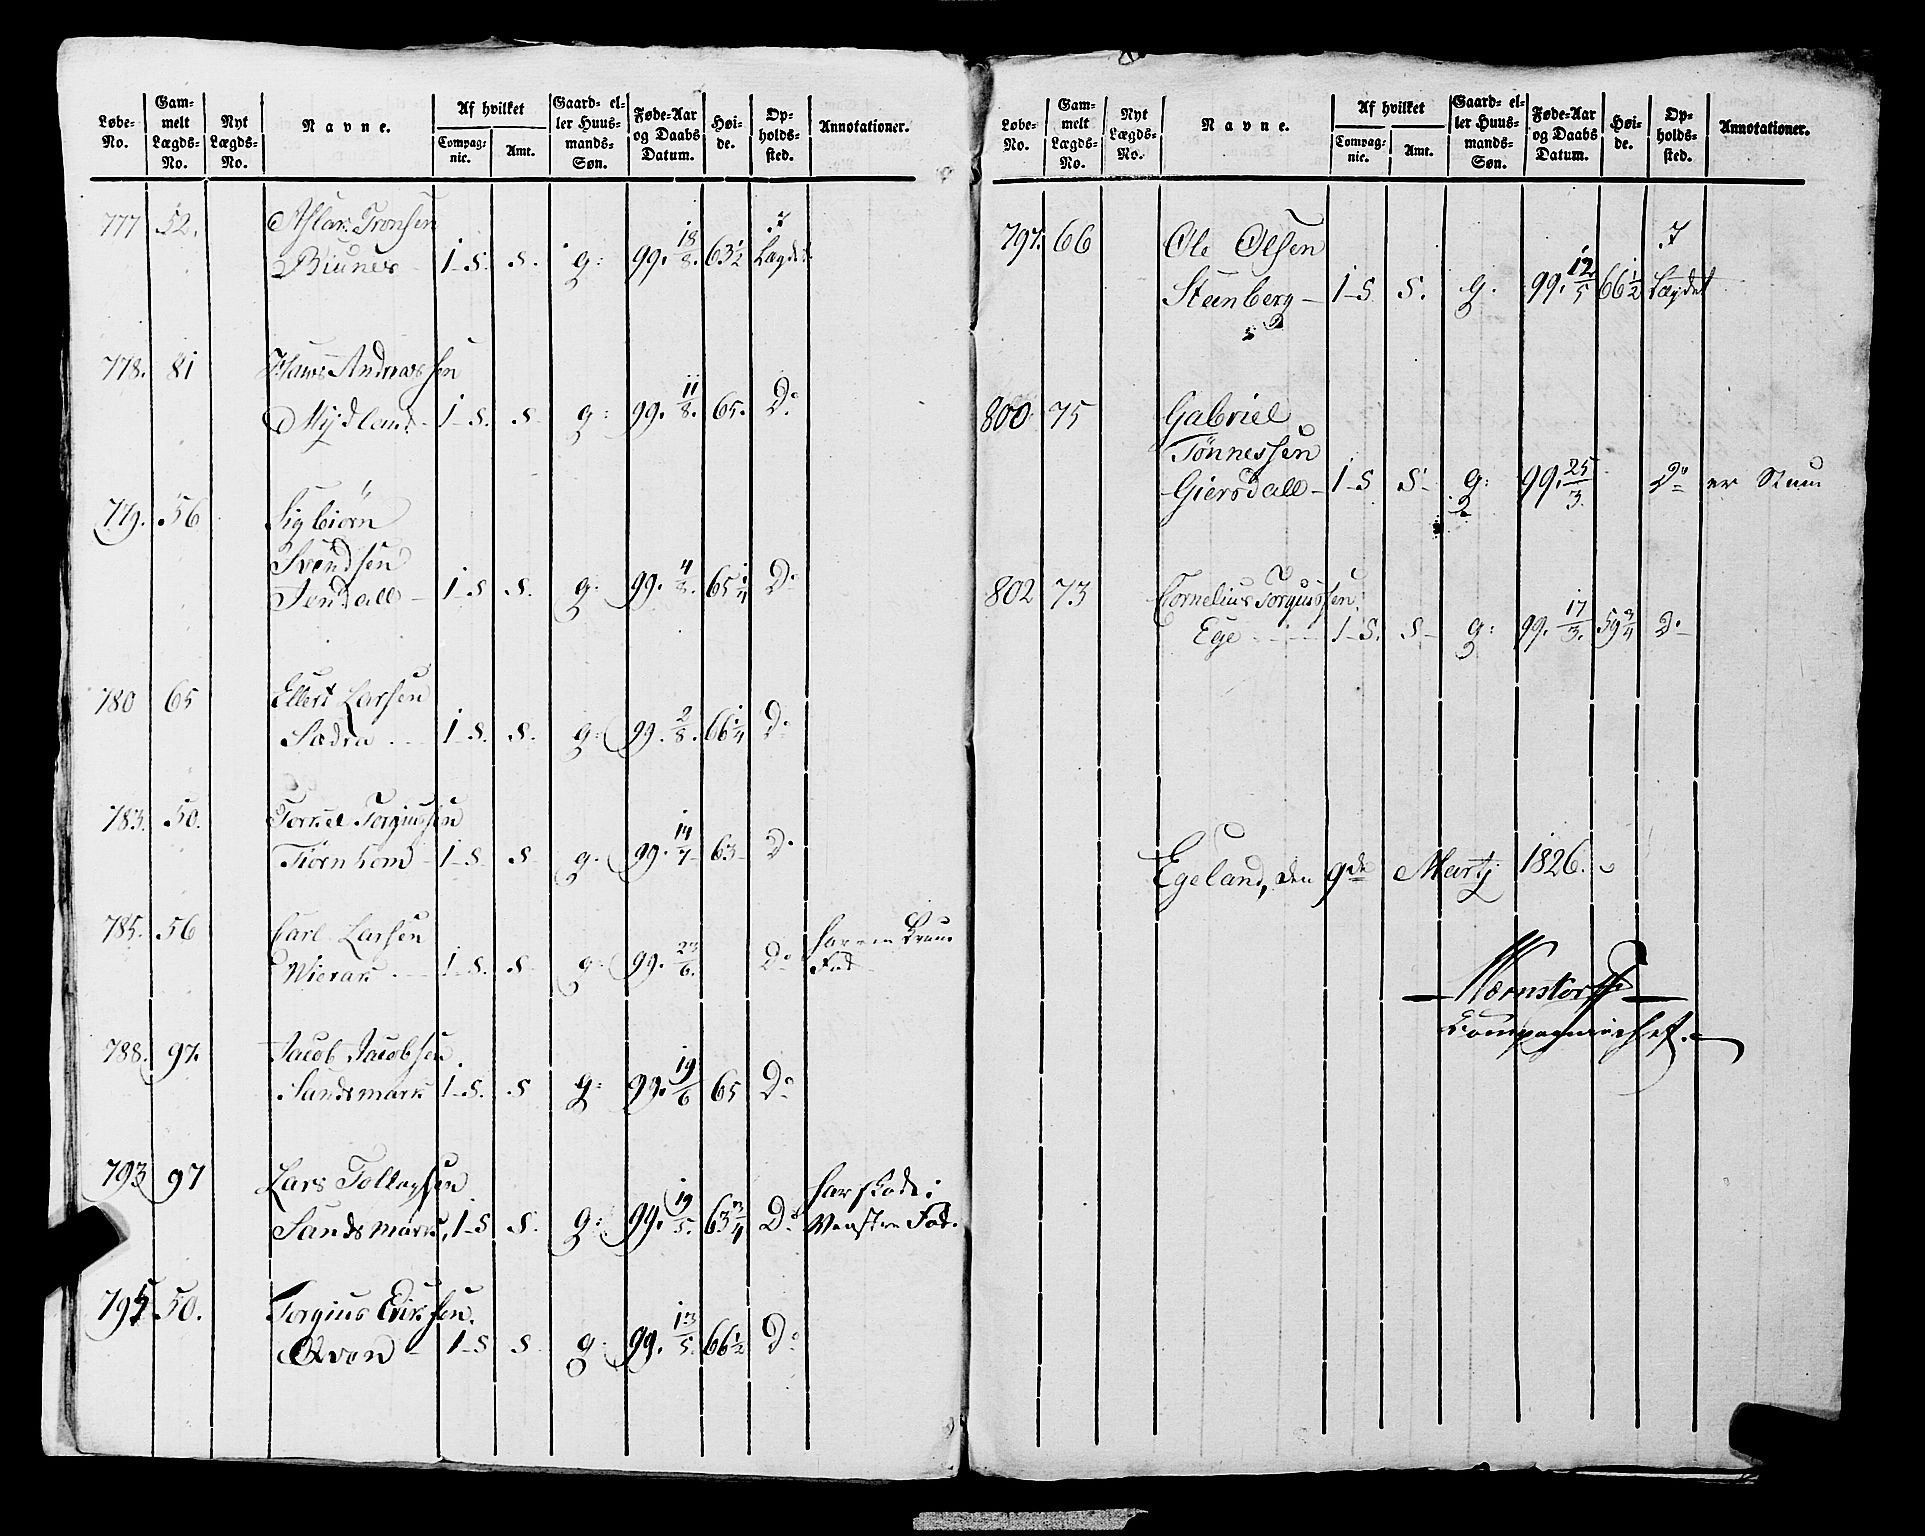 Løbe-No. Gam-melt Lægds-No. Nyt Lægds-No. Navne. Af hvilket Compag-nie. Amt. Gaard- el-ler Huus-mands-Søn. Føde-Aar og Daabs Datum. Høi-de. Op-holds-sted. Annotationer.
777 52. Aslak Tronsen
Biunes 1-S. S. g: 99. 18/8. 63 1/2 I Lægdet
778. 81 Hans Andreassen
Mydland 1-S. S. g: 99. 11/8. 65. Do
779. 56 Sigbiørn
Svendsen
Jendall 1-S S. g: 99. 4/8. 65 1/4 Do
780 65 Ellert Larsen
Sadra 1-S. S. g: 99. 2/8. 66 1/4 Do
783. 50. Torkel Torgiussen
Tiørnhom 1-S S g: 99. 14/7 63 Do
785. 56 Carl Larsen har en Krum
Wierak 1-S. S g: 99. 23/6. Do Fod
788. 97. Jacob Jacobsen
Sandsmark 1-S. S g: 99. 19/6 65 Do
793 97 Lars Tollagsen har skade i
Sandsmark, 1-S S. g: 99. 19/5. 63 3/4 Do Venstre Fod.
795 50. Torgius Eriksen.
Qven 1-S S g: 99. 13/5. 66 1/2 Do
Løbe-No. Gam-melt Lægds-No. Nyt Lægds-No. Navne. Af hvilket Compag-nie. Amt. Gaard- el-ler Huus-mands-Søn. Føde-Aar og Daabs Datum. Høi-de. Op-holds-sted. Annotationer.
797. 66 Ole Olsen I
Steenberg 1-S S. g. 99. 12/5 66 1/2 Lægdet
800 75 Gabriel
Tønnessen
Giersdall 1-S S g: 99. 25/3. Do er Stum
802 73 Cornelius Torgiussen
Ege 1-S. S g: 99. 17/3. 59 3/4 Do
Egeland, den 9de Martj 1826.
Wernstorff
Compagniechef.